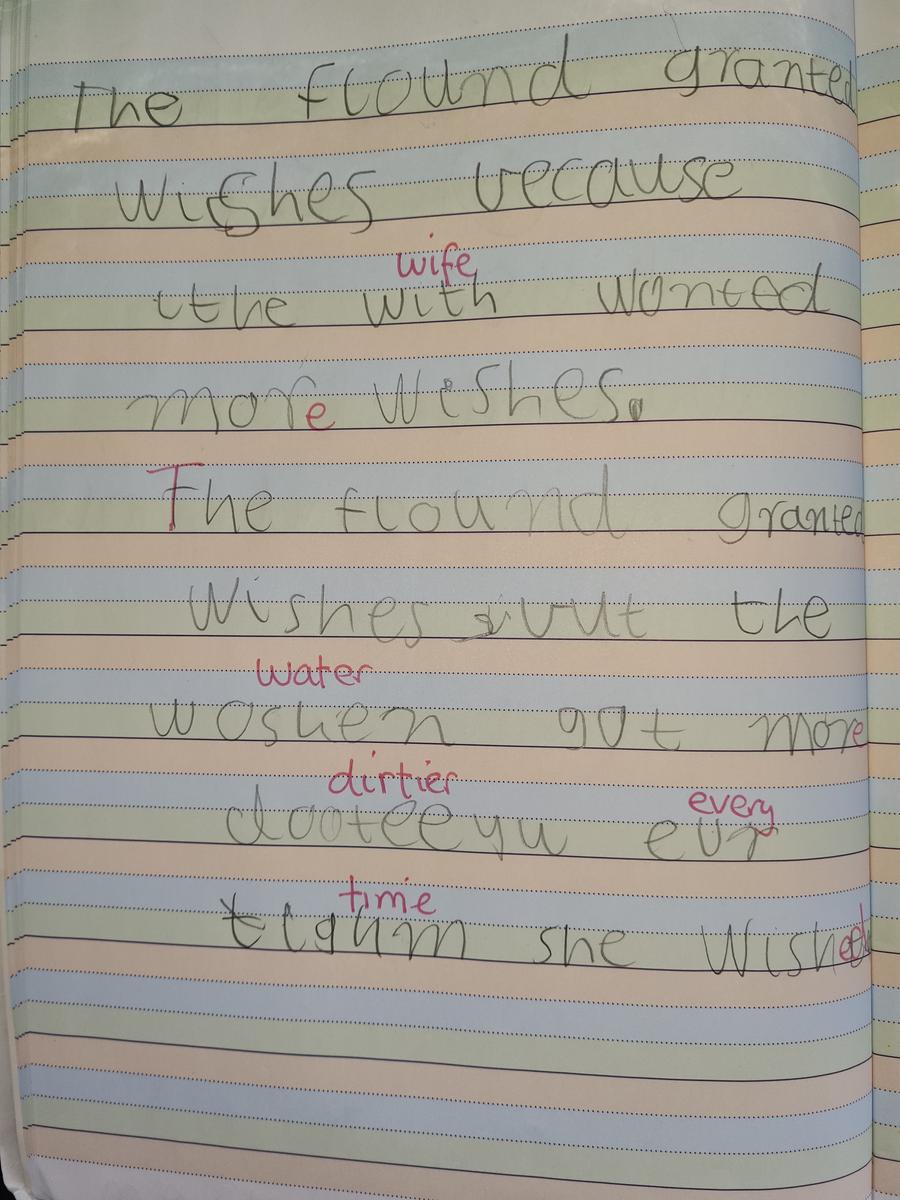 The flound granted
wishes vecause
wife
tthe with wonted
more wishes.
The flound granted
wishes vut the
water
woshen got more
dirtier every
dooteeyu evr
time
tighm she wished